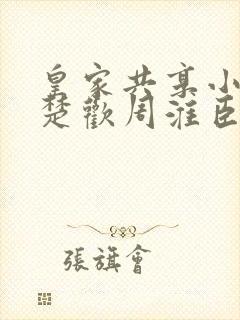 皇家共享小
楚歡周淮臣
張旗會